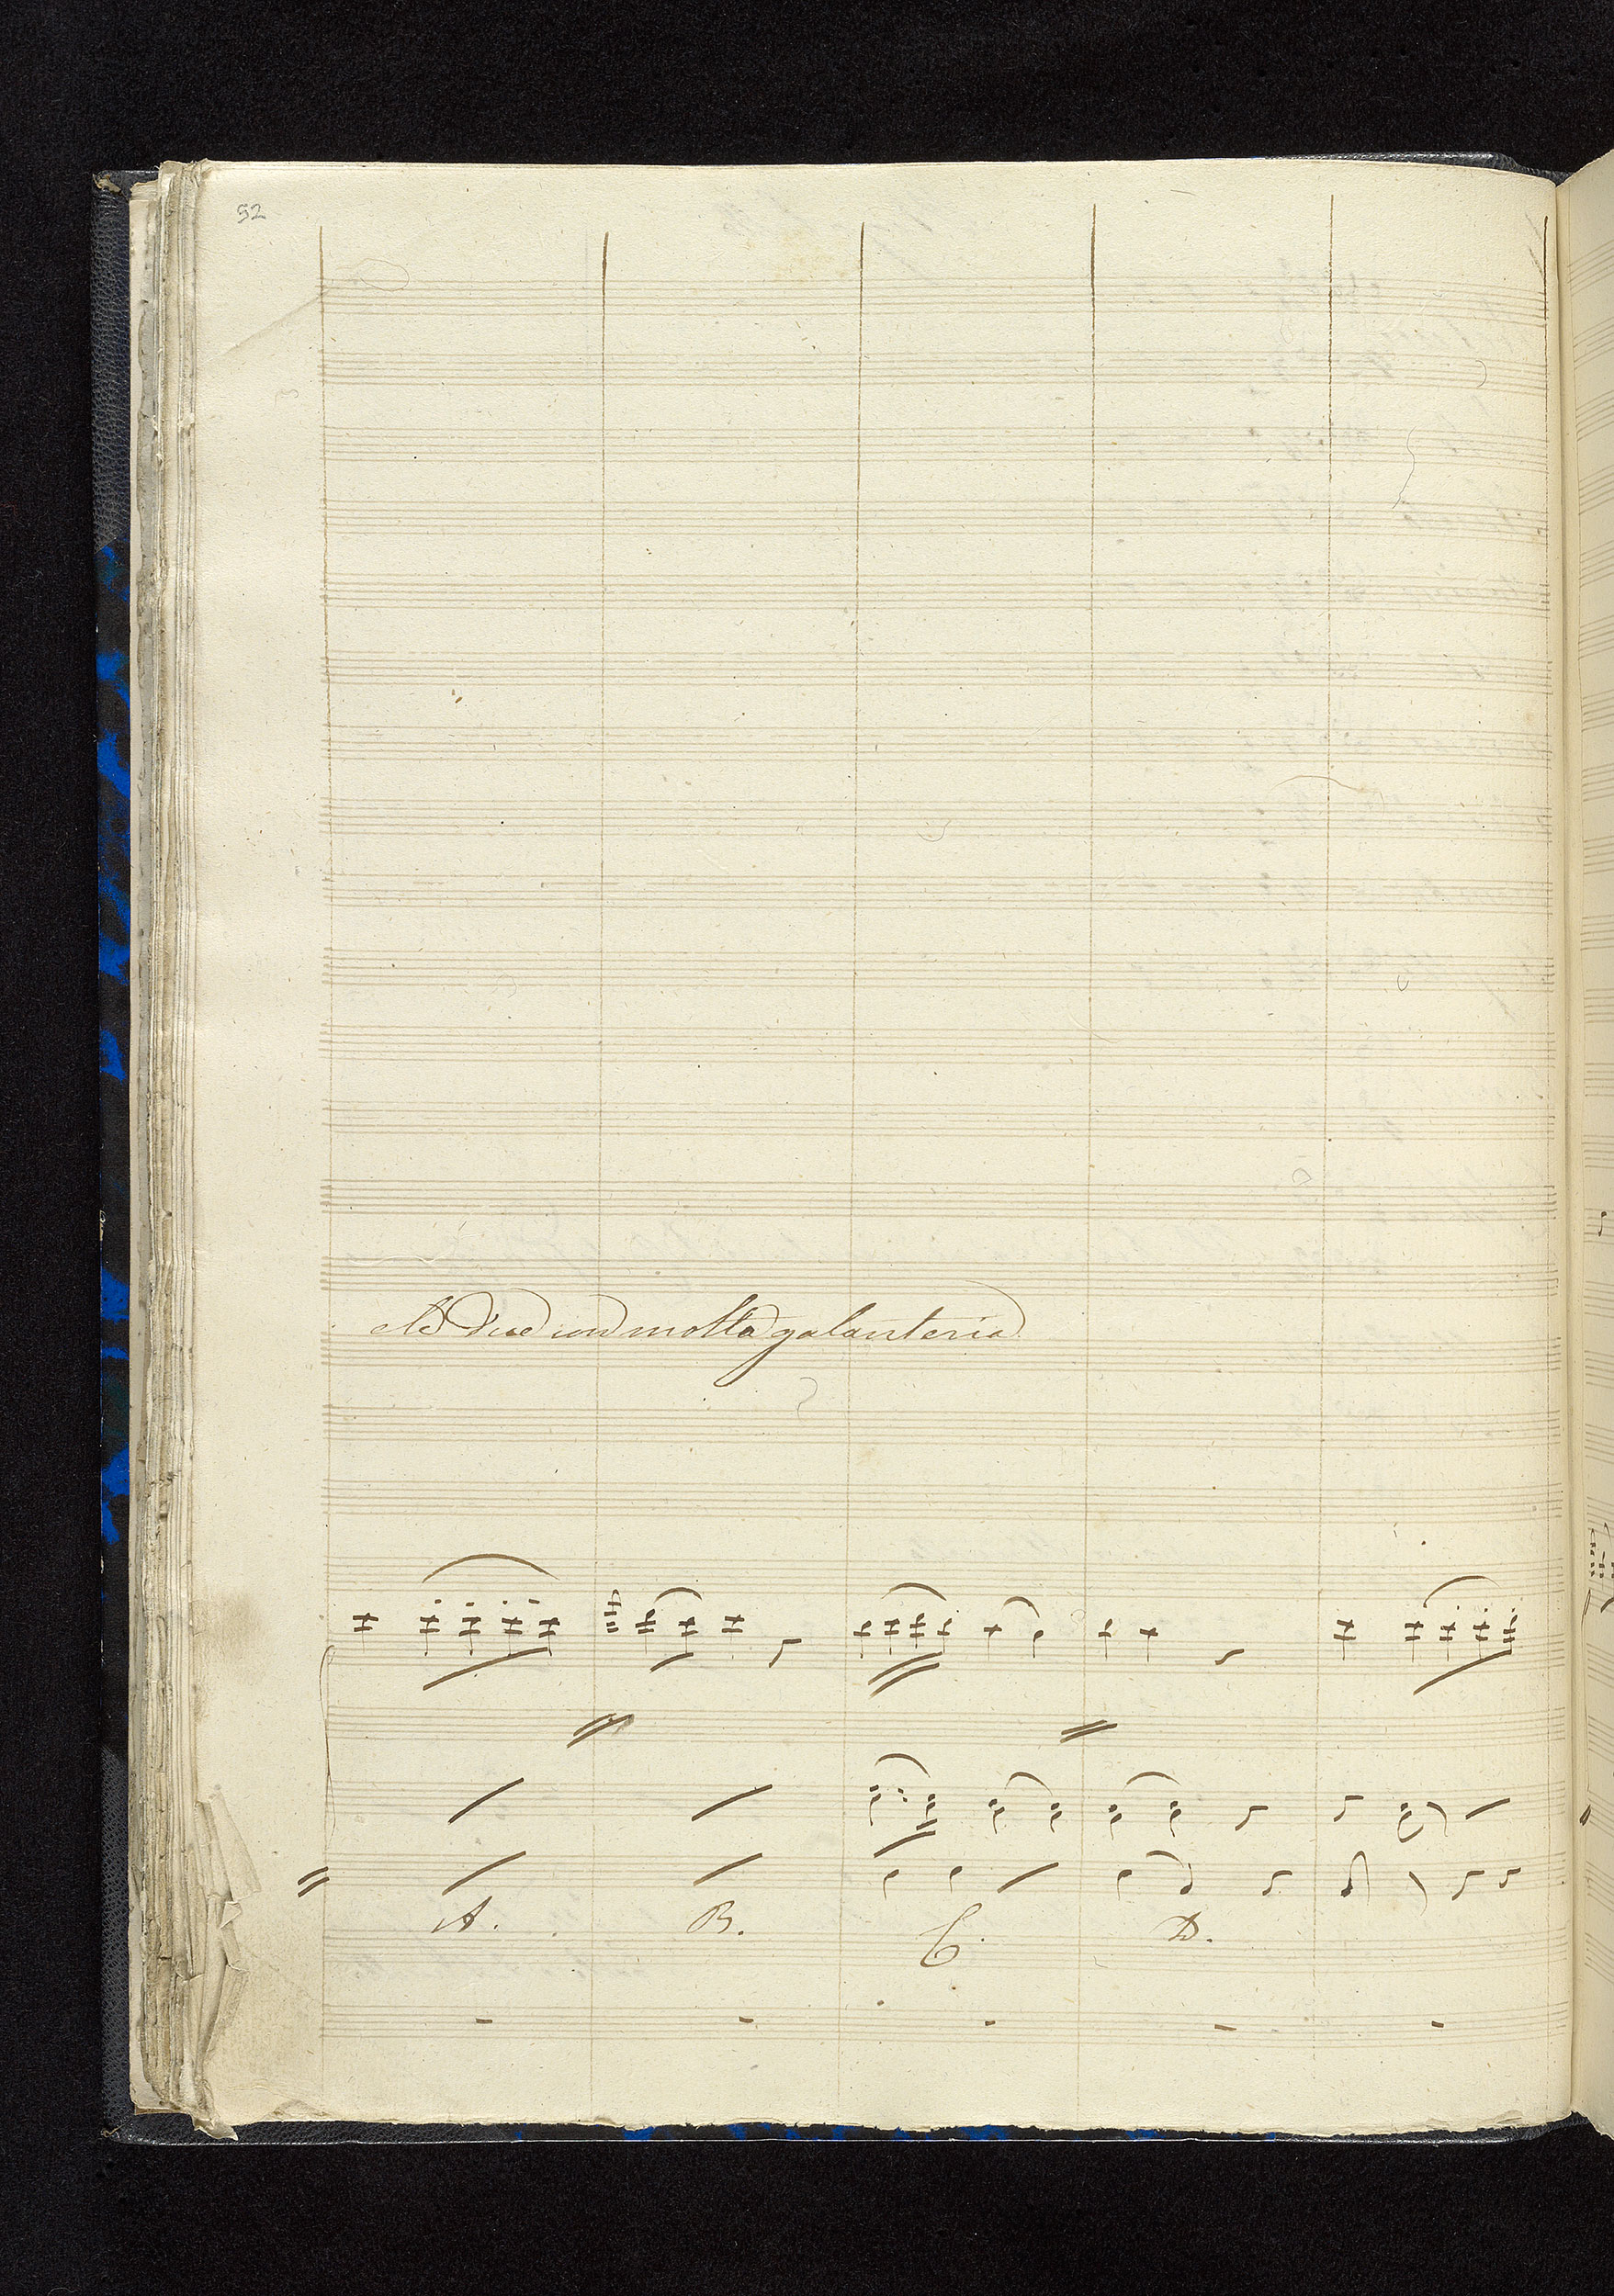 52
A Due con molta galanteria
A. B. C. D.